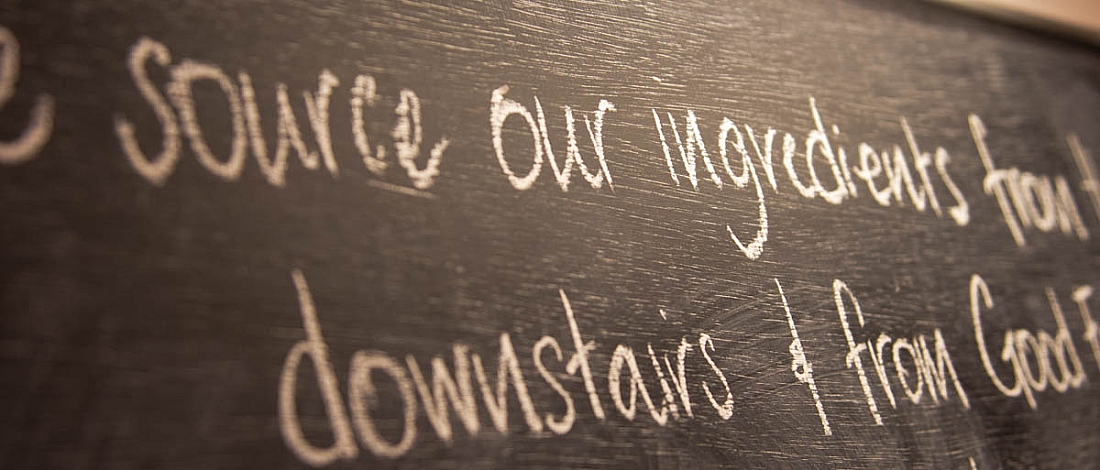 source our ingredients from
downstairs & from Good